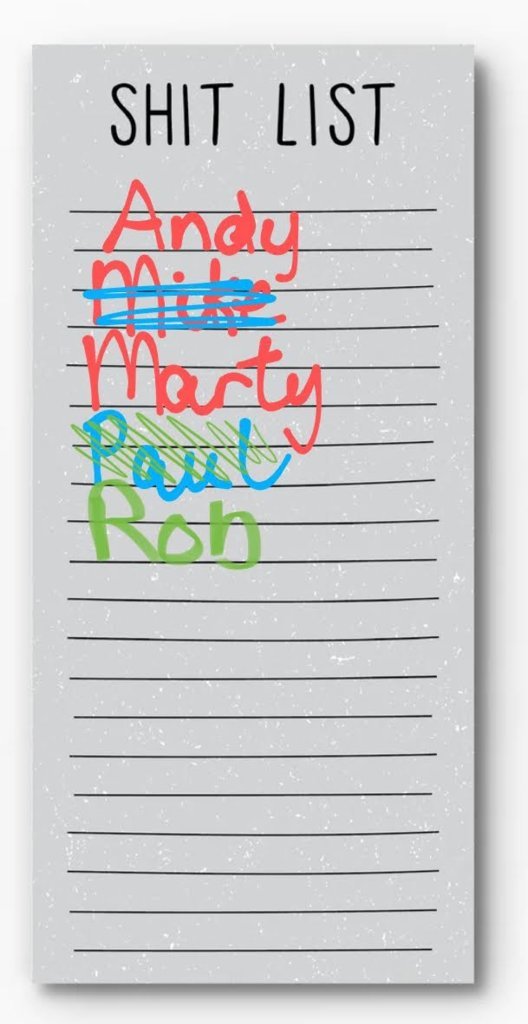 SHIT LIST
Andy
Mike
Marty
Paul
Rob